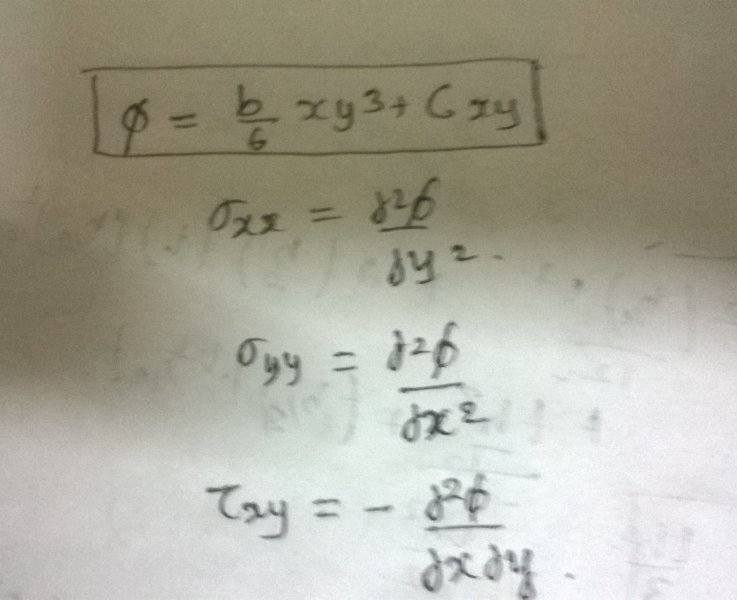 ϕ = b/6 xy³ + Cxy
σxx = ∂²ϕ/∂y².
σyy = ∂²ϕ/∂x²
τxy = - ∂²ϕ/∂x∂y.